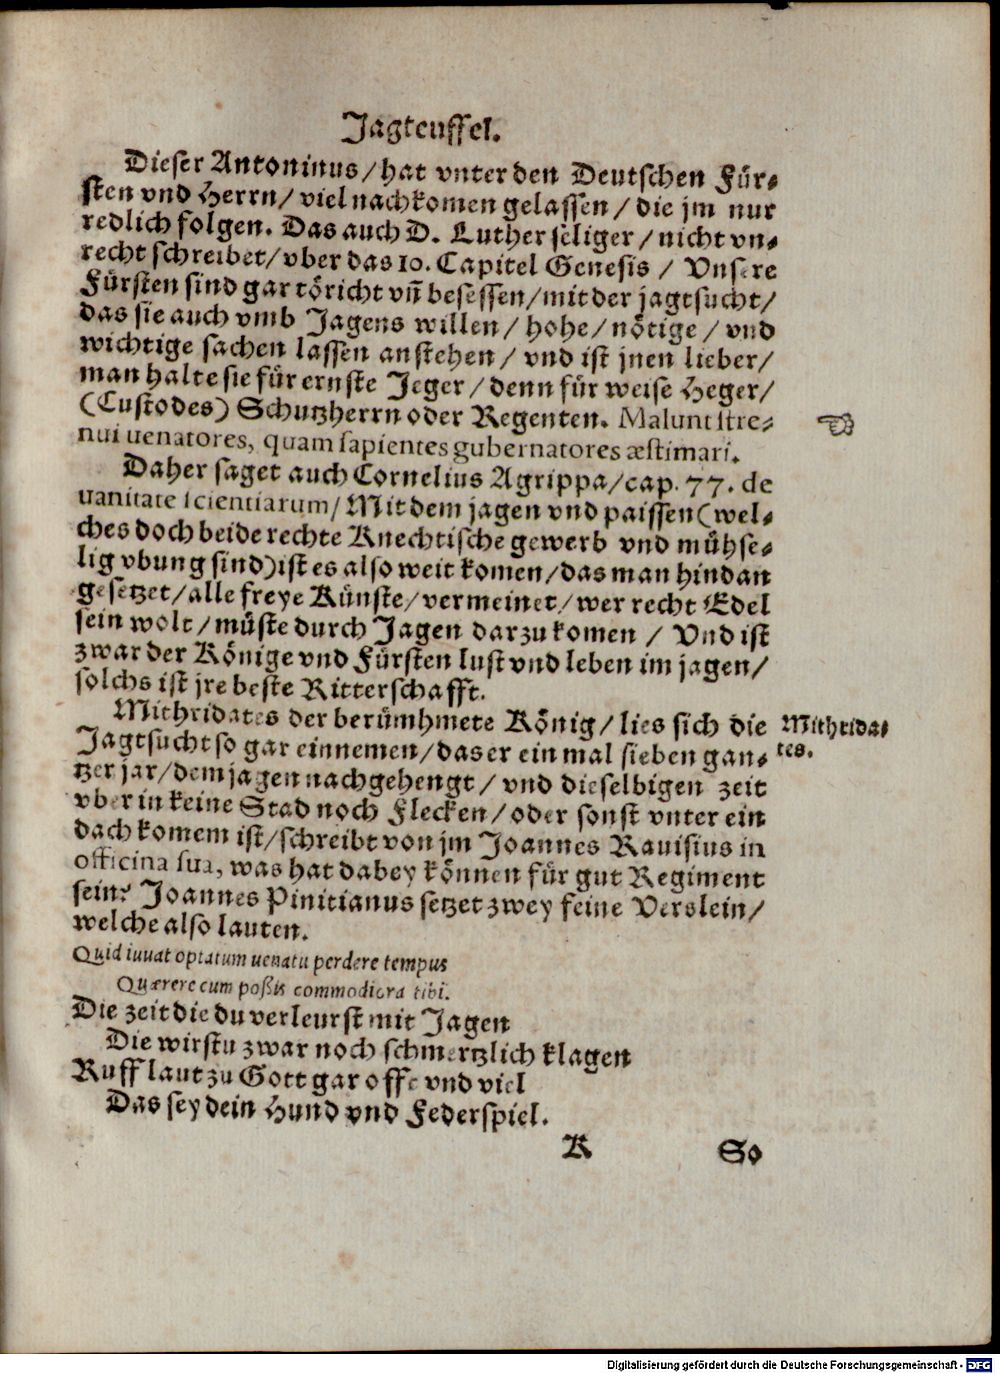 Jagteuffel.
Dieser Antoninus/hat vnter den Deutschen Für-
sten vnd Herrn/ viel nachkomen gelassen / die jm nur
redlich folgen. Das auch D. Luther seliger / nicht vn-
recht schreibet/ vber das 10. Capitel Genesis / Vnsere
Fürsten sind gar töricht vñ besessen/mit der jagtsucht/
das sie auch vmb Jagens willen/ hohe/ nötige / vnd
wichtige sachen lassen anstehen/ vnd ist jnen lieber/
man halte sie für ernste Jeger / denn für weise Heger/
(Custodes) Schutzherrn oder Regenten. Malunt stre-
nui uenatores, quam sapientes gubernatores æstimari.
Daher saget auch Cornelius Agrippa/cap. 77. de
uanitate scientiarum/ Mit dem jagen vnd paissen (wel-
ches doch beide rechte Knechtische gewerb vnd mühse-
lig vbung sind) ist es also weit komen/das man hindan
gesetzet/alle freye Künste/vermeinet/ wer recht Edel
sein wolt/müste durch Jagen darzu komen / Vnd ist
zwar der Könige vnd Fürsten lust vnd leben im jagen/
solchs ist jre beste Ritterschafft.
Mithridates der berümhmete König/ lies sich die
Mithrida-
tes.
Jagtsucht so gar einnemen/das er ein mal sieben gan-
tzer jar/dem jagen nachgehengt / vnd dieselbigen zeit
vber in keine Stad noch Flecken/oder sonst vnter ein
dach komem ist/schreibt von jm Joannes Rauisius in
officina sua, was hat dabey können für gut Regiment
sein? Joannes Pinitianus setzet zwey feine Verslein/
welche also lauten.
Quid iuuat optatum uenatu perdere tempus
Quærere cum poßis commodiora tibi.
Die zeit die du verleurst mit Jagen
Die wirstu zwar noch schmertzlich klagen
Ruff laut zu Gott gar offe vnd viel
Das sey dein Hund vnd Federspiel.
K So
☜
Digitalisierung gefördert durch die Deutsche Forschungsgemeinschaft - DFG